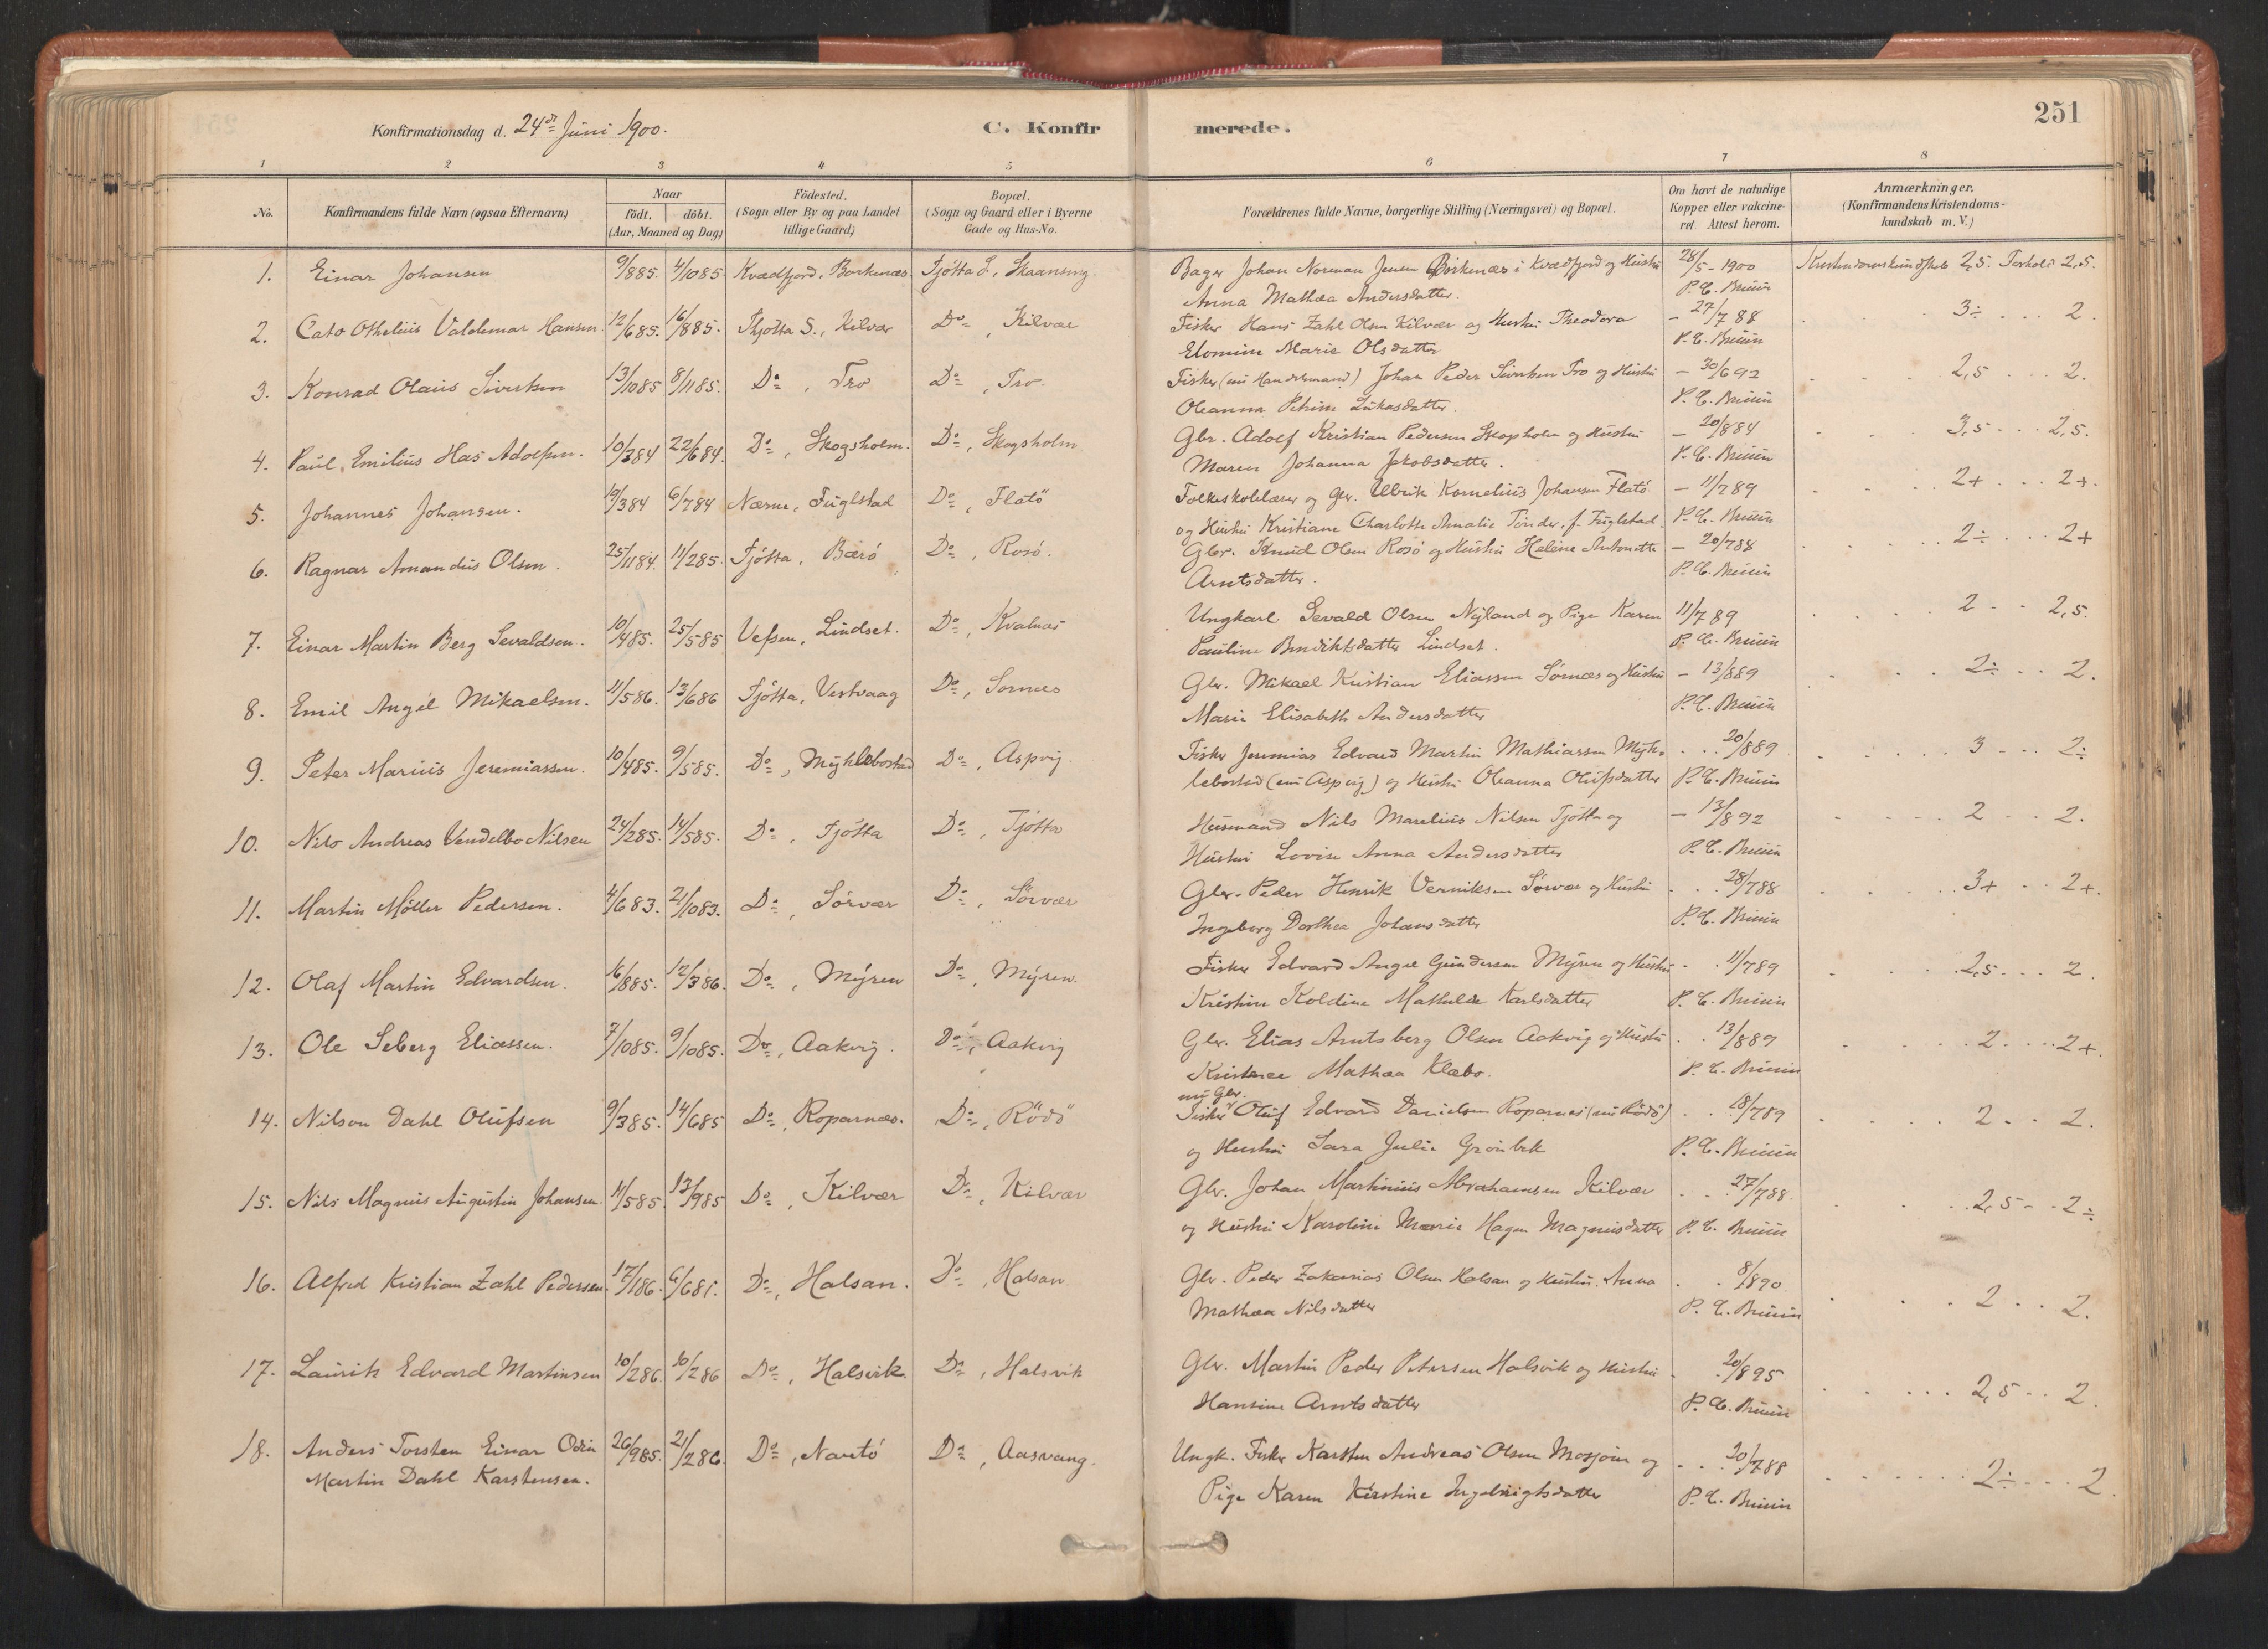 Konfirmationsdag d. 24de Juni 1900. C. Konfirmerede. 251
1 2 3 4 5 6 7 8
No. Konfirmandens fulde Navn (ogsaa Efternavn) Naar födt. döbt. (Aar, Maaned og Dag) Födested. (Sogn eller By og paa Landet tillige Gaard) Bopæl. (Sogn og Gaard eller i Byerne Gade og Hus-No. Forældrenes fulde Navne, borgerlige Stilling (Næringsvei) og Bopæl. Om havt de naturlige Kopper eller vakcineret Attest herom. Anmærkninger. (Konfirmandens Kristendomskundskab m. V.)
1. Einar Johansen 9/885. 4/1085 Kvædfjord, Borkenæs Tjótta S., Bager Johan Norman Jensen Borkenæs i Kvædfjord og Hustru 28/5-1900 Kristendomskundskab 2,5. Forhold 2,5.
Anna Mathæa Andersdatter. P. C. Bruun
2. Cato Othelius Valdemar Hansen 12/685. 16/885. Thjótta S., Kilvær Do, Kilvær Fisker Hans Zahl Olsen Kilvær og Hustru Theodora - 27/788 3÷ 2.
Marie Olsdatter P. C. Bruun
3. Konrad Olaus Sivertsen 13/1085 8/1185. Do, Tro Do, Tro. Fisker (nu Handelsmand) Johan Peder Sivertsen Tro og Hustru - 30/692 2,5 2.
Oleanna Petrine Lukasdatter. P. C. Bruun
4. Paul Emilius Has Adolfsen. 10/384 22/684. Do, Skogsholm. Do, Skogsholm Gbr. Adolf Kristian Pedersen Skogsholm og Hustru - 20/884 3,5 2,5.
Maren Johanna Jakobsdatter. P. C. Bruun
5. Johannes Johansen. 19/384 6/784 Næme, Fuglstad Do, Flató Folkeskolelærer og Gbr. Ulbrik Kornelius Johansen Flató - 11/789 2+ 2+.
og Hustru Kristiane Charlotte Amalie Tönder, f. Fuglstad. P. C. Bruun
6. Ragnar Amandus Olsen. 25/1184. 11/285. Tjótta, Bæró Do, Rosó. Gbr. Knud Olsen Rosó og Hustru Heline Antonette - 20/788 2÷ 2+
Arntsdatter. P. C. Bruun
7. Einar Martin Berg Sevaldsen. 10/485. 25/585 Vefsen, Lindset. Do, Kvalnæs Ungkarl Sevald Olsen Nyland og Pige Karen 11/789 2 2,5.
Pauline Bendiktsdatter Lindset. P. C. Bruun
8. Emil Angel Mikaelsen. 11/586. 13/686 Tjótta, Vestvaag Do, Sornæs Gbr. Mikael Kristian Eliassen Sörnæs og Hustru - 13/889 2÷ 2.
Marie Elisabeth Andersdatter P. C. Bruun
9. Peter Marius Jeremiassen. 10/485. 9/585. Do, Myklebostad Do, Aspvig. Fisker Jeremias Edvard Martin Mathiassen Myk- 20/889 3 2÷
lebostad (nu Aspvig) og Hustru Oleanna Olufsdatter P. C. Bruun
10. Nils Andreas Vendelbo Nilsen 24/285. 14/585. Do, Tjótta Do, Tjótta Husmand Nils Marelius Nilsen Tjótta og - 13/892 2 2.
Hustru Lovise Anna Andersdatter P. C. Bruun
11. Martin Möller Pedersen. 4/683. 21/1083. Do, Sörvær Do, Sörvær Gbr. Peder Henrik Verniksen Sörvær og Hustru 28/788 3+ 2+.
Ingeborg Dorthea Johansdatter P. C. Bruun
12. Olaf Martin Edvardsen. 16/885. 12/386. Do, Myren Do, Myren. Fisker Edvard Angel Gundersen Myren og Hustru 11/789 2,5 2.
Kristine Koldine Mathilde Karlsdatter P. C. Bruun
13. Ole Seberg Eliassen. 7/1085. 9/1085. Do, Aakvig. Do, Aakvig Gbr. Elias Arntsberg Olsen Aakvig og Hustru 13/889 2 2+.
Mathæa Klæbo. P. C. Bruun
14. Nilson Dahl Olufsen 9/385. 14/685 Do, Roparnæs. Do, Rödó nu Gbr. Fisker Oluf Edvard Danielsen Roparnæs (nu Rödó) 18/789 2 2.
og Hustru Sara Julie Grönbek P. C. Bruun
15. Nils Magnus Augustin Johansen. 11/585. 13/985 Do, Kilvær Do, Kilvær Gbr. Johan Martinius Abrahamsen Kilvær 27/788 2,5 2÷
og Hustru Karoline Marie Hagen Magnusdatter P. C. Bruun
16. Alfred Kristian Zahl Pedersen. 17/186. 6/681. Do, Halsan. Do, Halsan Gbr. Peder Zakarias Olsen Halsan og Hustru Anna 8/890 2 2.
Mathæa Nilsdatter P. C. Bruun
17. Laurits Edvard Martinsen 10/286. 10/286 Do, Halsvik. Do, Halsvik Gbr. Martin Peder Petersen Halsvik og Hustru 20/895 2,5 2.
Hansine Arntsdatter P. C. Bruun
18. Anders Torsten Einar Odin 26/985. 21/286. Do, Navtó Do, Aasvang. Ungk. Fisker Karsten Andreas Olsen Mosjöen og 20/788 2÷ 2.
Martin Dahl Karstensen. Pige Karen Kerstine Ingebrigtsdatter P. C. Bruun